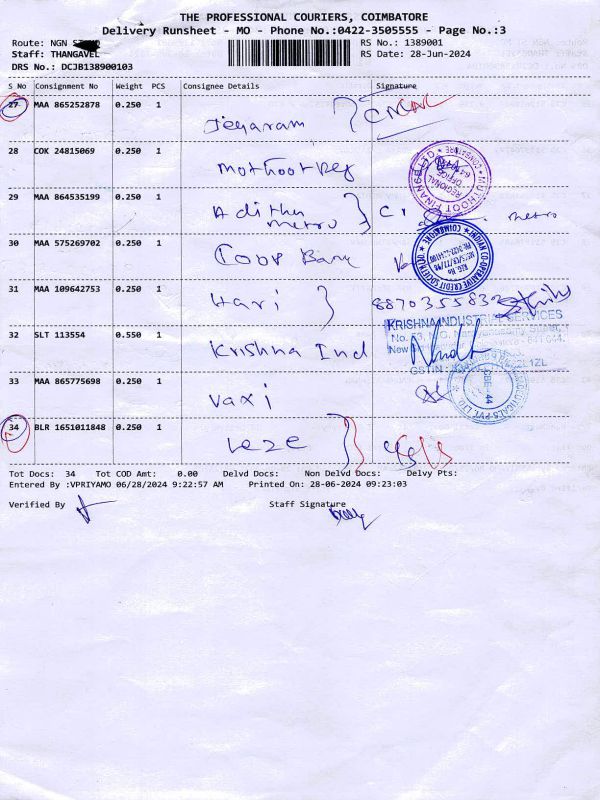 THE PROFESSIONAL COURIERS, COIMBATORE
Delivery Runsheet - MO - Phone No.:0422-3505555 - Page No.:3
Route: NGN
RS No.: 1389001
Staff: THANGAVEL
RS Date: 28-Jun-2024
DRS No.: DCJB138900103
S No Consignment No Weight PCS Consignee Details Signature
27 MAA 865252878 0.250 1
Jeyaram
28 COK 24815069 0.250 1
MUTHOOT FINANCE
REGIONAL OFFICE
COIMBATORE
29 MAA 864535199 0.250 1
metro metro
30 MAA 575269702 0.250 1
Coop Bank
31 MAA 109642753 0.250 1
Hari 8870355832
32 SLT 113554 0.550 1
KRISHNA INDUSTRIAL SERVICES
Krishna Ind
33 MAA 865775698 0.250 1
Vaxi
34 BLR 1651011848 0.250 1
Tot Docs: 34 Tot COD Amt: 0.00 Delvd Docs: Non Delvd Docs: Delvy Pts:
Entered By :VPRIYAMO 06/28/2024 9:22:57 AM Printed On: 28-06-2024 09:23:03
Verified By Staff Signature